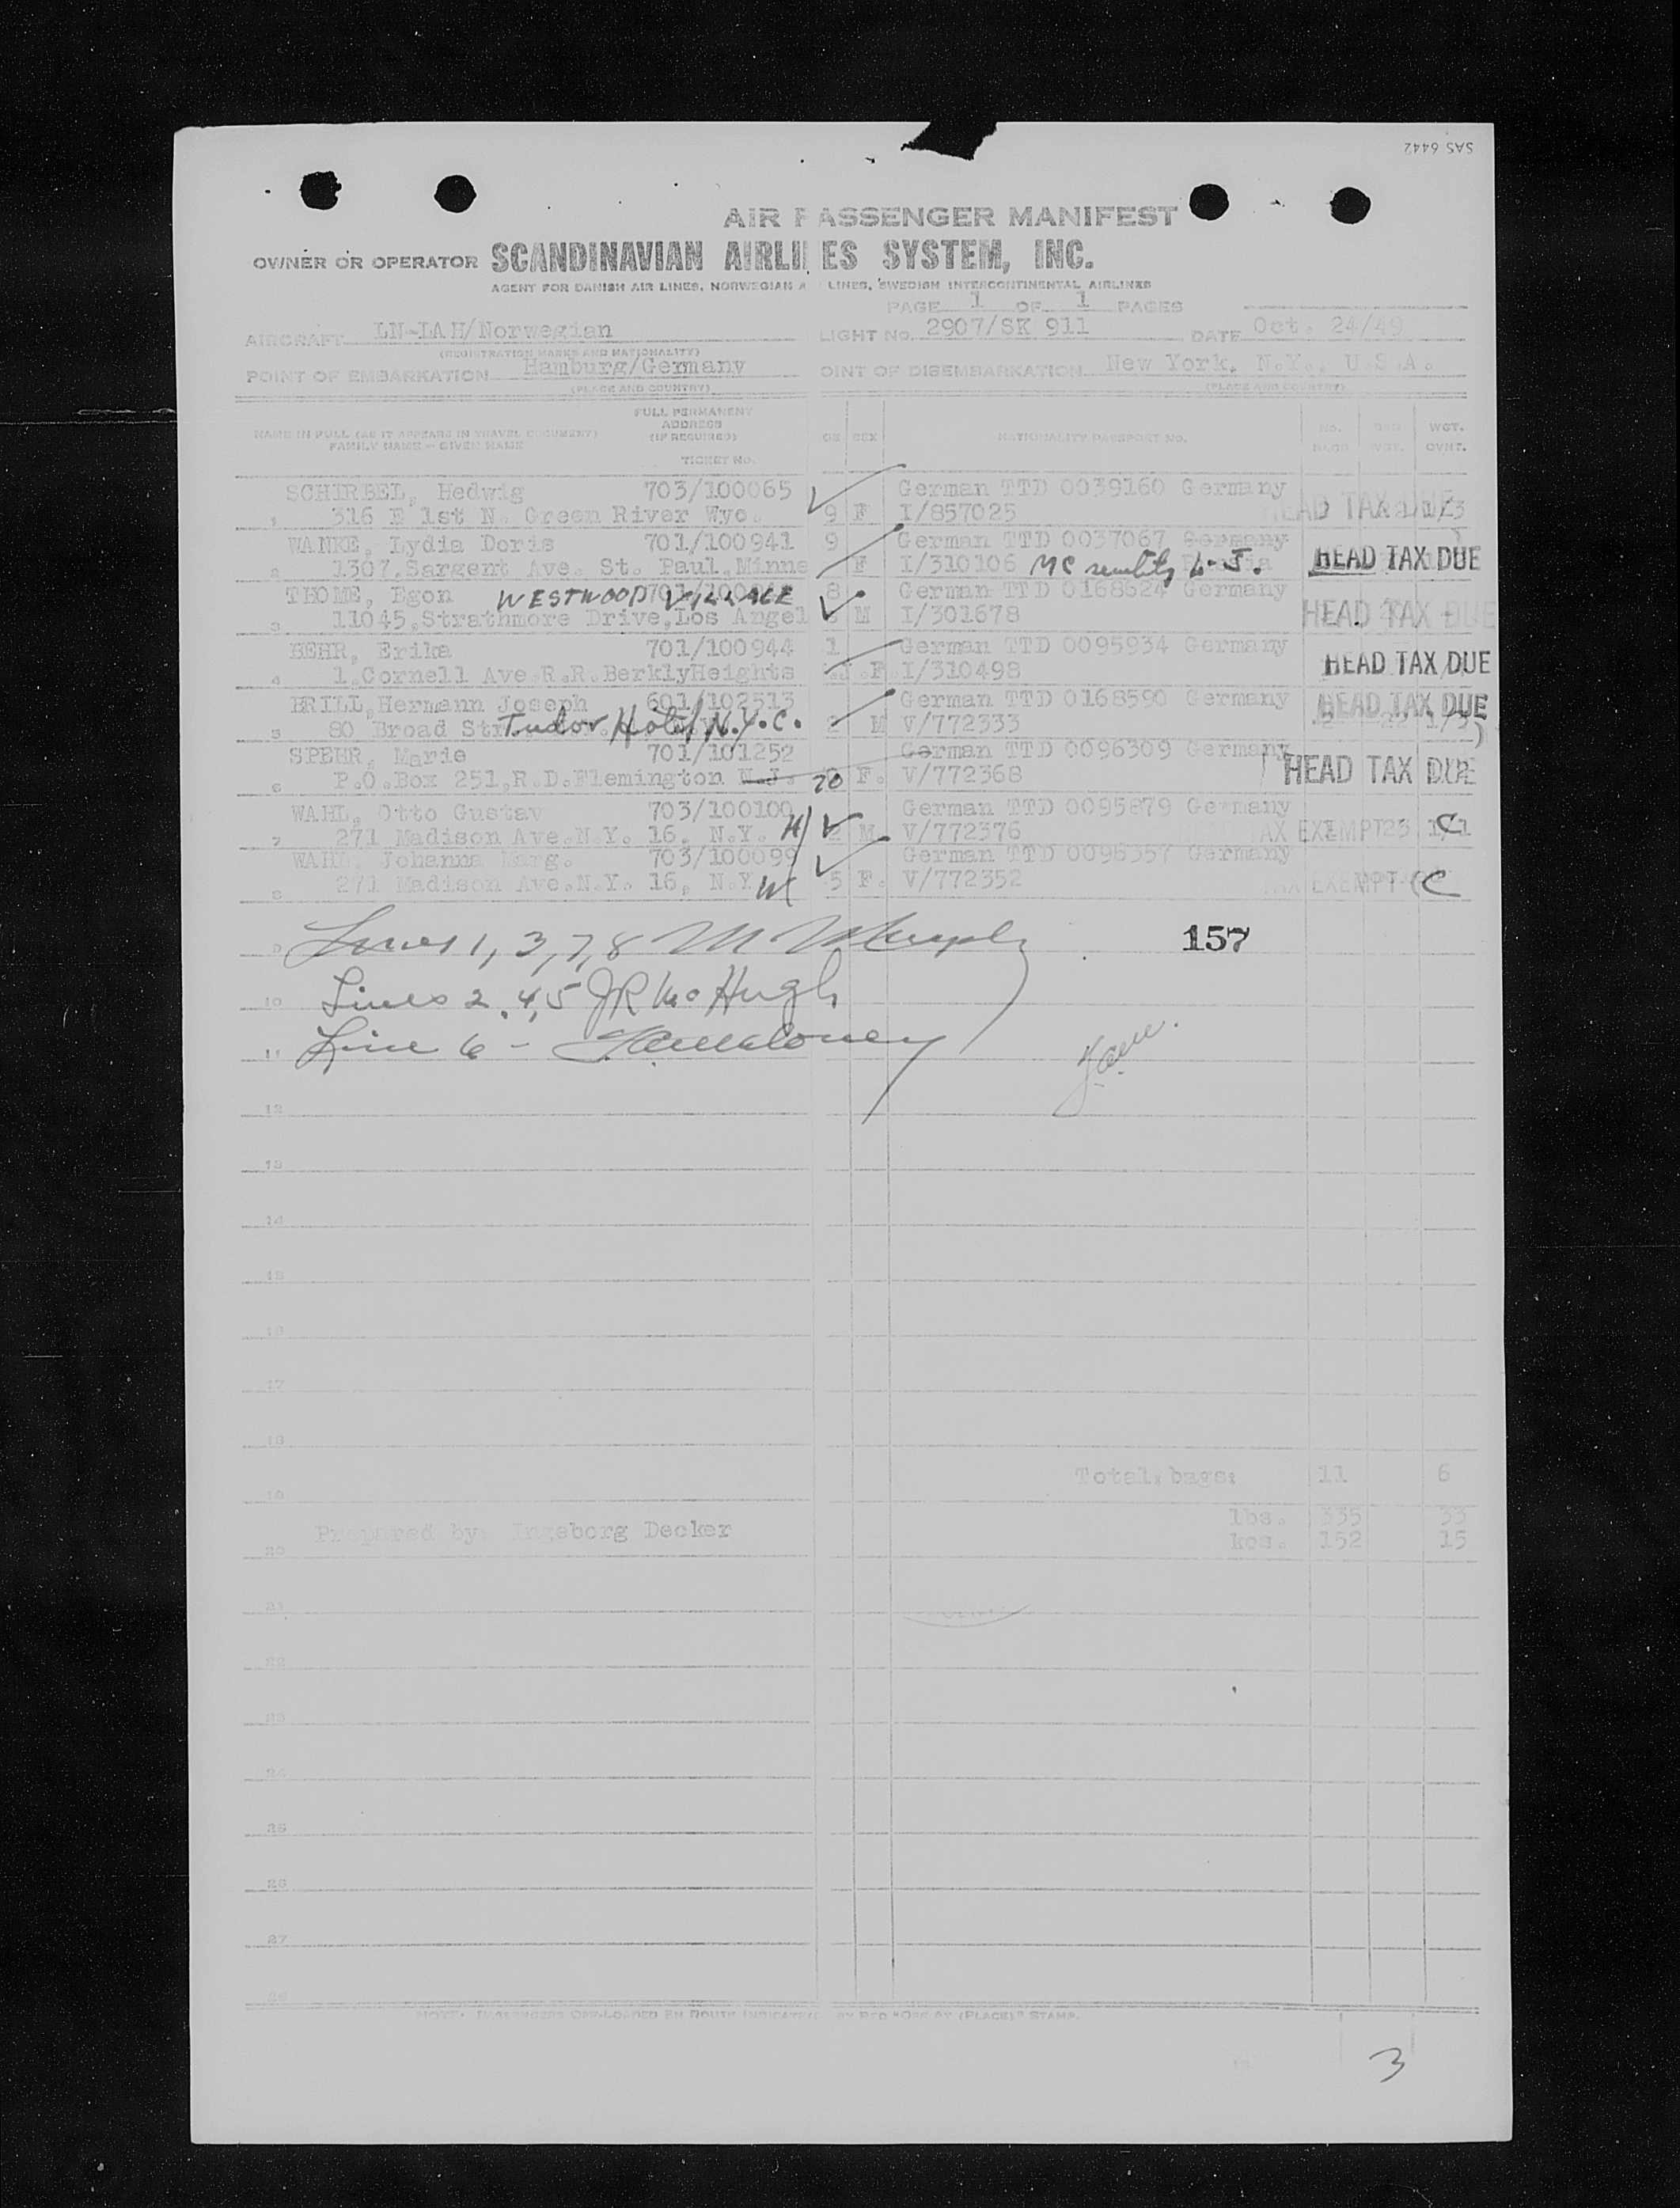 SAS 6442
AIR PASSENGER MANIFEST
OWNER OR OPERATOR SCANDINAVIAN AIRLINES SYSTEM, INC.
AGENT FOR DANISH AIR LINES, NORWEGIAN A LINES, SWEDISH INTERCONTINENTAL AIRLINES
PAGE 1 OF 1 PAGES
AIRCRAFT LN-IAH/Norwegian LIGHT NO. 2907/SK 911 DATE Oct. 24/49
(REGISTRATION MARKS AND NATIONALITY)
POINT OF EMBARKATION Hamburg/Germany OINT OF DISEMBARKATION New York, N.Y., U.S.A.
(PLACE AND COUNTRY) (PLACE AND COUNTRY)
NAME IN FULL (AS IT APPEARS IN TRAVEL DOCUMENT) FAMILY NAME – GIVEN NAME FULL PERMANENT ADDRESS (IF REQUIRED) TICKET NO. GE SEX NATIONALITY PASSPORT NO. NO. BAGS WGT. WGT. OVHT.
SCHIRBEL, Hedwig 703/100065 German TTD 0039160 Germany
1 316 E 1st N. Green River Wyo. 9 F I/857025 HEAD TAX
WANKE, Lydia Doris 701/100941 9 German TTD 0037067 Germany
2 1307, Sargent Ave. St. Paul, Minne F I/310106 HEAD TAX DUE
THOME, Egon WESTWOOD VILLAGE 8 German TTD 0168624 Germany
3 11045, Strathmore Drive, Los Angel M I/301678 HEAD TAX DUE
BEHR, Erika 701/100944 1 German TTD 0095934 Germany
4 1, Cornell Ave.R.R.BerklyHeights F I/310498 HEAD TAX DUE
BRILL, Hermann Joseph 601/102513 German TTD 0168590 Germany HEAD TAX DUE
5 80 Broad Str Tudor Hotel N.Y.C. 2 M V/772333 1/3
SPEHR, Marie 701/101252 German TTD 0096309 Germany
6 P.O.Box 251, R.D.Flemington N.J. 70 F. V/772368 HEAD TAX DUE
WAHL, Otto Gustav 703/100100 German TTD 0095879 Germany
7 271 Madison Ave.N.Y. 16, N.Y. H M. V/772376 AX EXEMPT 23 C
WAHL, Johanna Marg. 703/100099 German TTD 0096357 Germany
8 271 Madison Ave.N.Y. 16, N.Y. W 5 F. V/772352 EXEMPT C
9 Lines 1, 3, 7, 8 M Murphy 157
10 Lines 2, 4, 5 JR McHugh
11 Line 6 -
12
13
14
15
16
17
18
Total bags: 11 6
19
lbs. 335 33
Prepared by: Ingeborg Decker
20 kos. 152 15
21
22
23
24
25
26
27
28
NOTE: PASSENGERS OFF-LOADED EN ROUTE INDICATED BY RED "OFF AT (PLACE)" STAMP.
3